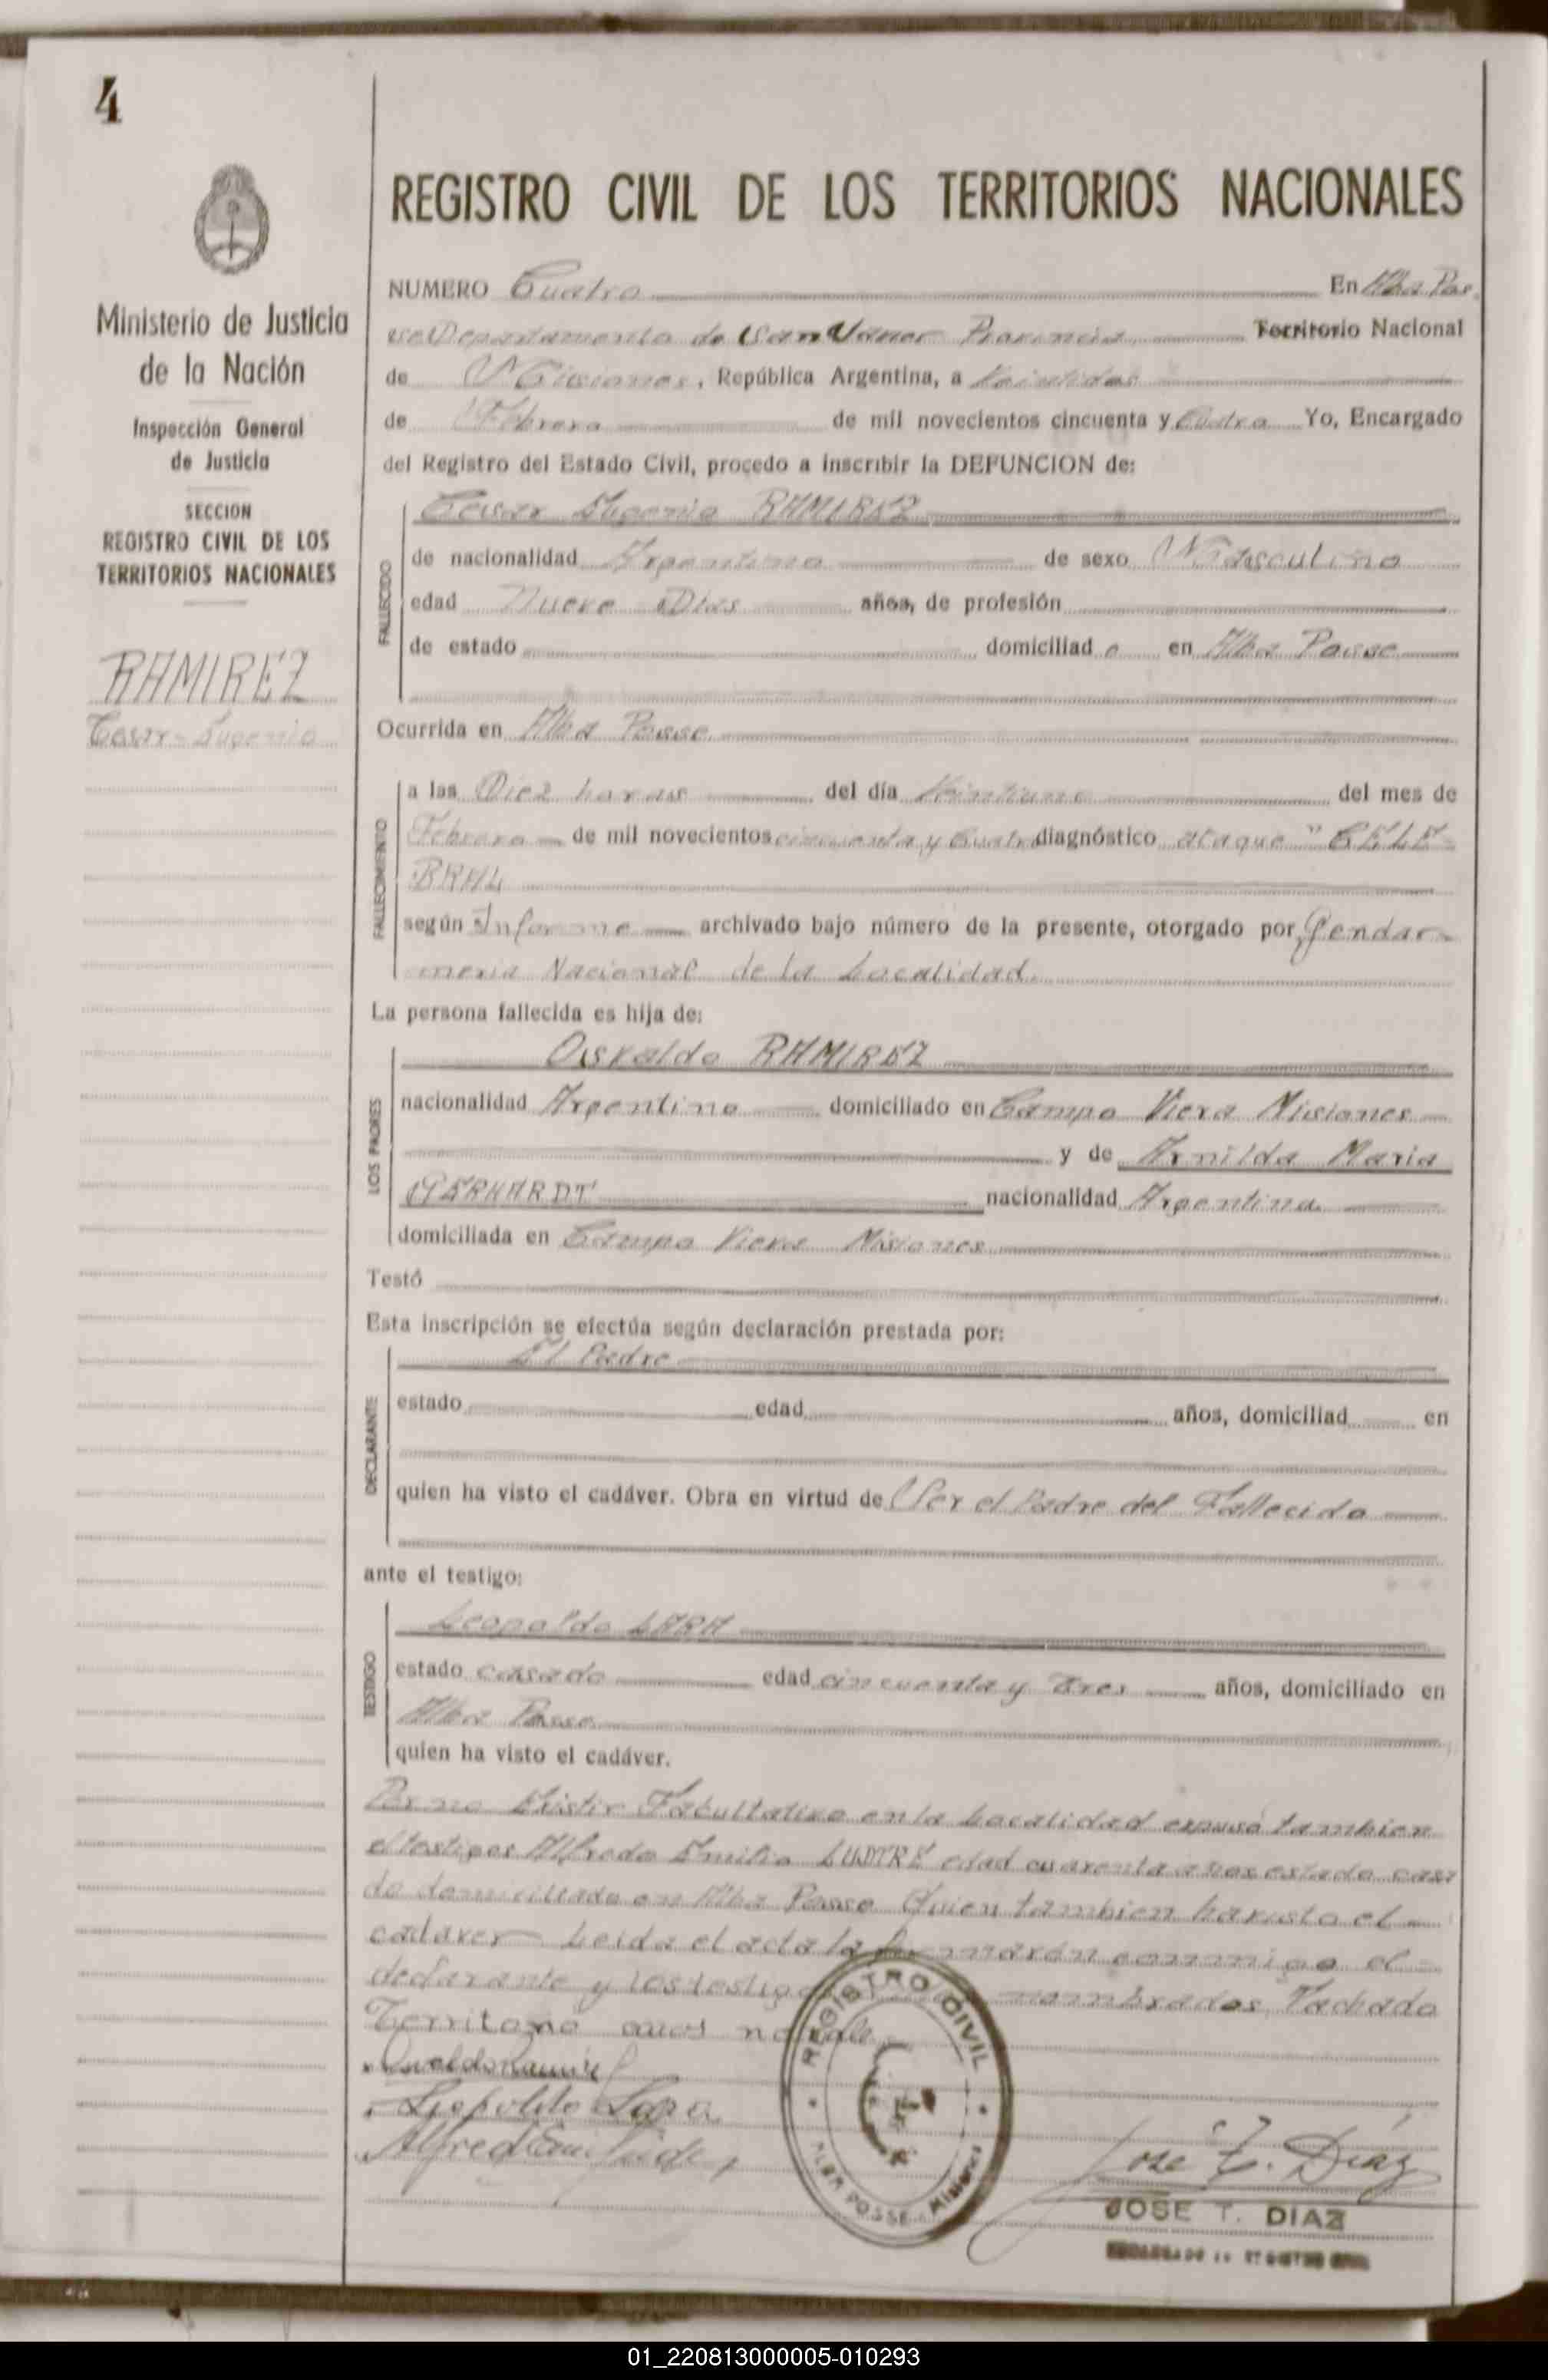 4
Ministerio de Justicia
de la Nación
Inspección General
de Justicia
SECCION
REGISTRO CIVIL DE LOS
TERRITORIOS NACIONALES
RAMIREZ
Cesar - Eugenio
REGISTRO CIVIL DE LOS TERRITORIOS NACIONALES
NUMERO Cuatro En Alba Pos
se Departamento de San Javier Provincia Territorio Nacional
de Misiones, República Argentina, a Veintidos
de Febrero de mil novecientos cincuenta y Cuatro Yo, Encargado
del Registro del Estado Civil, procedo a inscribir la DEFUNCION de:
FALLECIDO
Cesar Eugenio RAMIREZ
de nacionalidad Argentino de sexo Masculino
edad Nueve Dias años, de profesión
de estado domiciliad o en Alba Posse
Ocurrida en Alba Posse
FALLECIMIENTO
a las Diez horas del día Veintiuno del mes de
Febrero de mil novecientos cincuenta y Cuatro diagnóstico ataque "CELE-
BRAL
según Informe archivado bajo número de la presente, otorgado por Gendar-
meria Nacional de la Localidad
La persona fallecida es hija de:
LOS PADRES
Osvaldo RAMIREZ
nacionalidad Argentino domiciliado en Campo Viera Misiones
y de Arnilda Maria
GERHARDT nacionalidad Argentina
domiciliada en Campo Viera Misiones
Testó
Esta inscripción se efectúa según declaración prestada por:
DECLARANTE
El Padre
estado edad años, domiciliad en
quien ha visto el cadáver. Obra en virtud de Ser el Padre del Fallecido
ante el testigo:
TESTIGO
Leopoldo LARA
estado casado edad cincuenta y Tres años, domiciliado en
Alba Posse
quien ha visto el cadáver.
Por no Existir Facultativo en la Localidad expuso tambien
el testigos Alfredo Emilio edad cuarenta años estado casa
do domiciliado en Alba Posse Quien tambien ha visto el
cadaver Leida el acta la conmigo el
declarante y los testigos nombrados Tachado
Territorio años no vale
Osvaldo Ramirez
Leopoldo Lara
Alfredo
REGISTRO CIVIL
ALBA POSSE - Misiones
José T. Díaz
JOSE T. DIAZ
ENCARGADO DE REGISTRO CIVIL
01_220813000005-010293